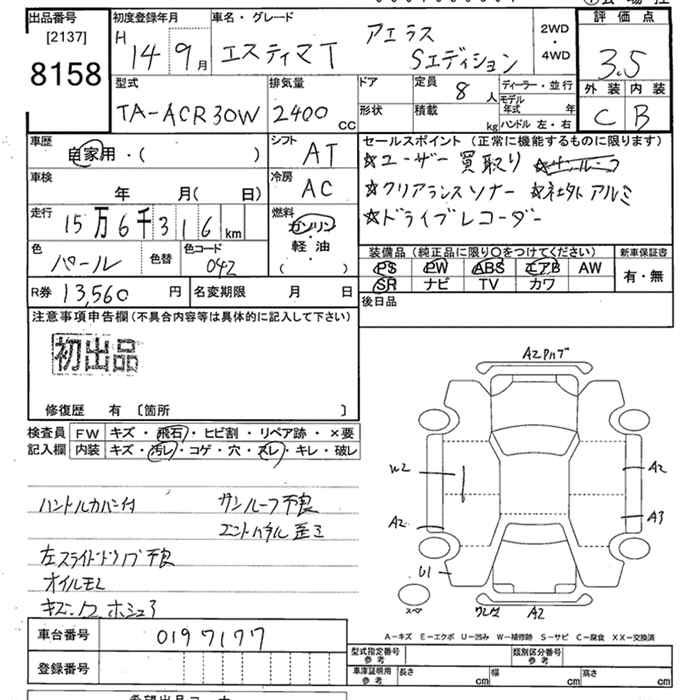 出品番号
[2137]
8158
初度登録年月
H14 9月
車名・グレード
エスティマT アエラス
Sエディション
2WD
・
4WD
評価点
3.5
外装 内装
C B
型式
TA-ACR30W
排気量
2400 cc
ドア
形状
定員 8 人
積載 kg
ディーラー・並行
モデル年式 年
ハンドル 左・右
車歴
自家用・( )
シフト
AT
車検
年 月( 日)
冷房
AC
走行
15万6千316 km
燃料
ガソリン
軽油
( )
色
パール
色替
色コード
042
セールスポイント (正常に機能するものに限ります)
☆ユーザー買取り
☆クリアランスソナー ☆社外アルミ
☆ドライブレコーダー
装備品 (純正品に限り○をつけてください)
PS PW ABS エアB AW
SR ナビ TV カワ
新車保証書
有・無
R券 13,560 円
名変期限 月 日
後日品
注意事項申告欄(不具合内容等は具体的に記入して下さい)
初出品
修復歴 有 〔箇所 〕
検査員
記入欄
FW キズ・飛石・ヒビ割・リペア跡・×要
内装 キズ・汚レ・コゲ・穴・スレ・キレ・破レ
ハンドルカバー付 サンルーフ不良
エンドパネル歪ミ
左スライドドア不良
オイルモレ
A2
W2
A2
A2
A3
U1
A2
A-キズ E-エクボ U-凹み W-補修跡 S-サビ C-腐食 XX-交換済
車台番号
0197177
登録番号
型式指定番号
参考
類別区分番号
参考
車庫証明用
参考
長さ cm
幅 cm
高さ cm
希望出品コーナー